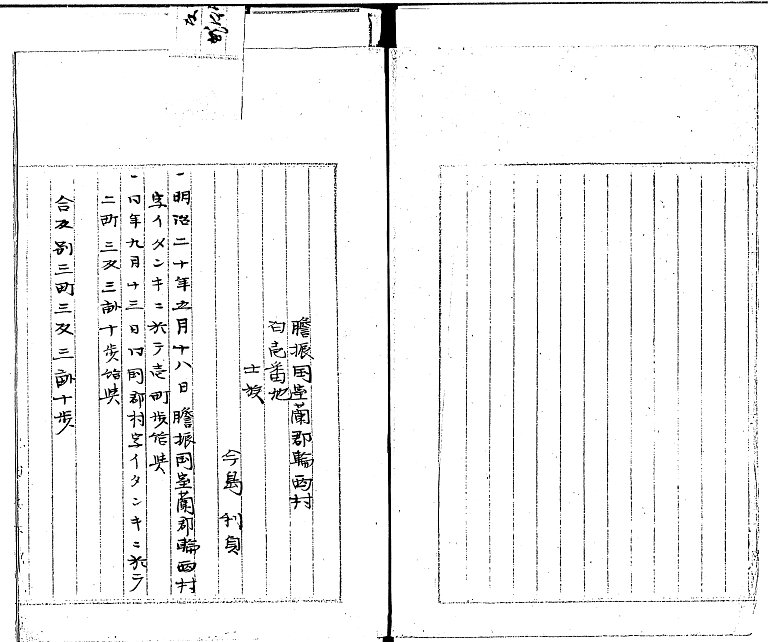 膽振国室蘭郡輪西村
百壱番地
士族
今島利貞
一明治二十年五月十八日膽振国室蘭郡輪西村
字イタンキニ於テ壱町歩給与
一同年九月十三日同国郡村字イタンキニ於テ
二町三反三畝十歩給与
合反別三町三反三畝十歩